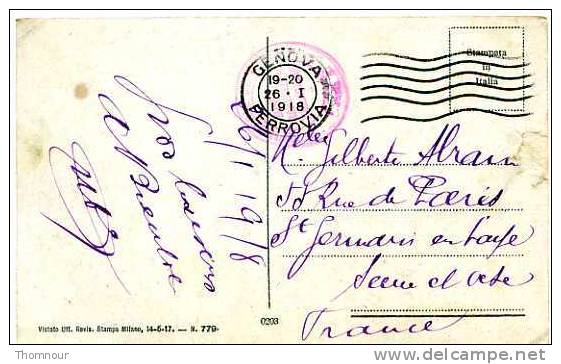 GENOVA
19-20
26 · I
1918
FERROVIA
Stampata
in
Italia
26/1 1918
Gros baisers
Melle Gilberte
55 Rue de Paris
St Germain en Laye
Seine et Oise
France
Vistato Uff. Revis. Stampa Milano, 14-6-17. — N. 779-
0203
Thomnour
http://www.delcampe.net